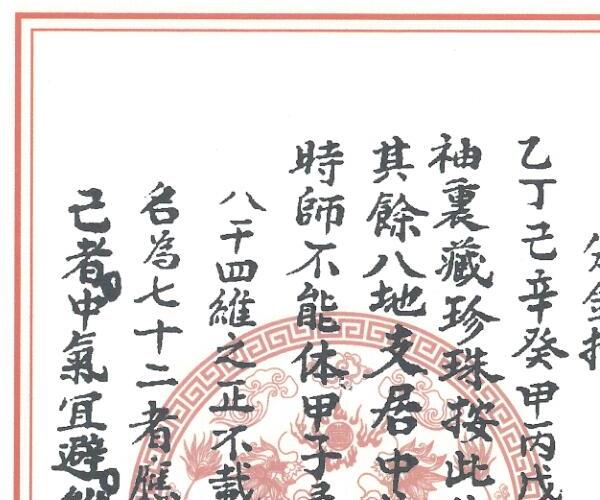 分金
乙丁己辛癸甲丙戊
袖裏藏珍珠按此
其餘八地支居中
時師不能体甲子
八干四維之正不載
名為七十二者應
己者中氣宜避